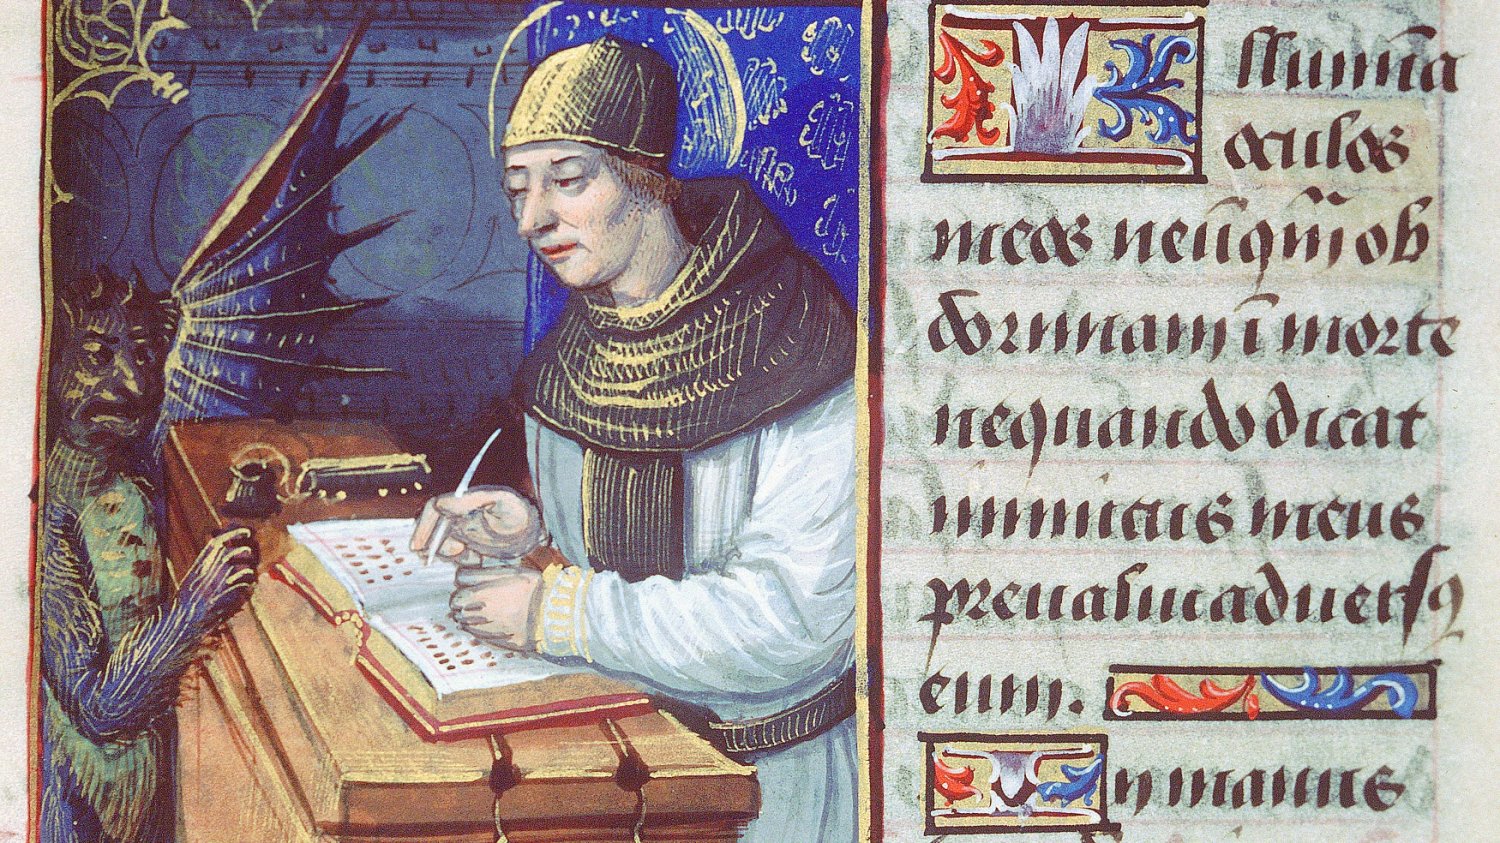 Illumīa
oculos
meos neūqm̄ ob
dormiam ī morte
nequando dicat
inimicus meus
preualui aduersꝰ
eum.
In manus